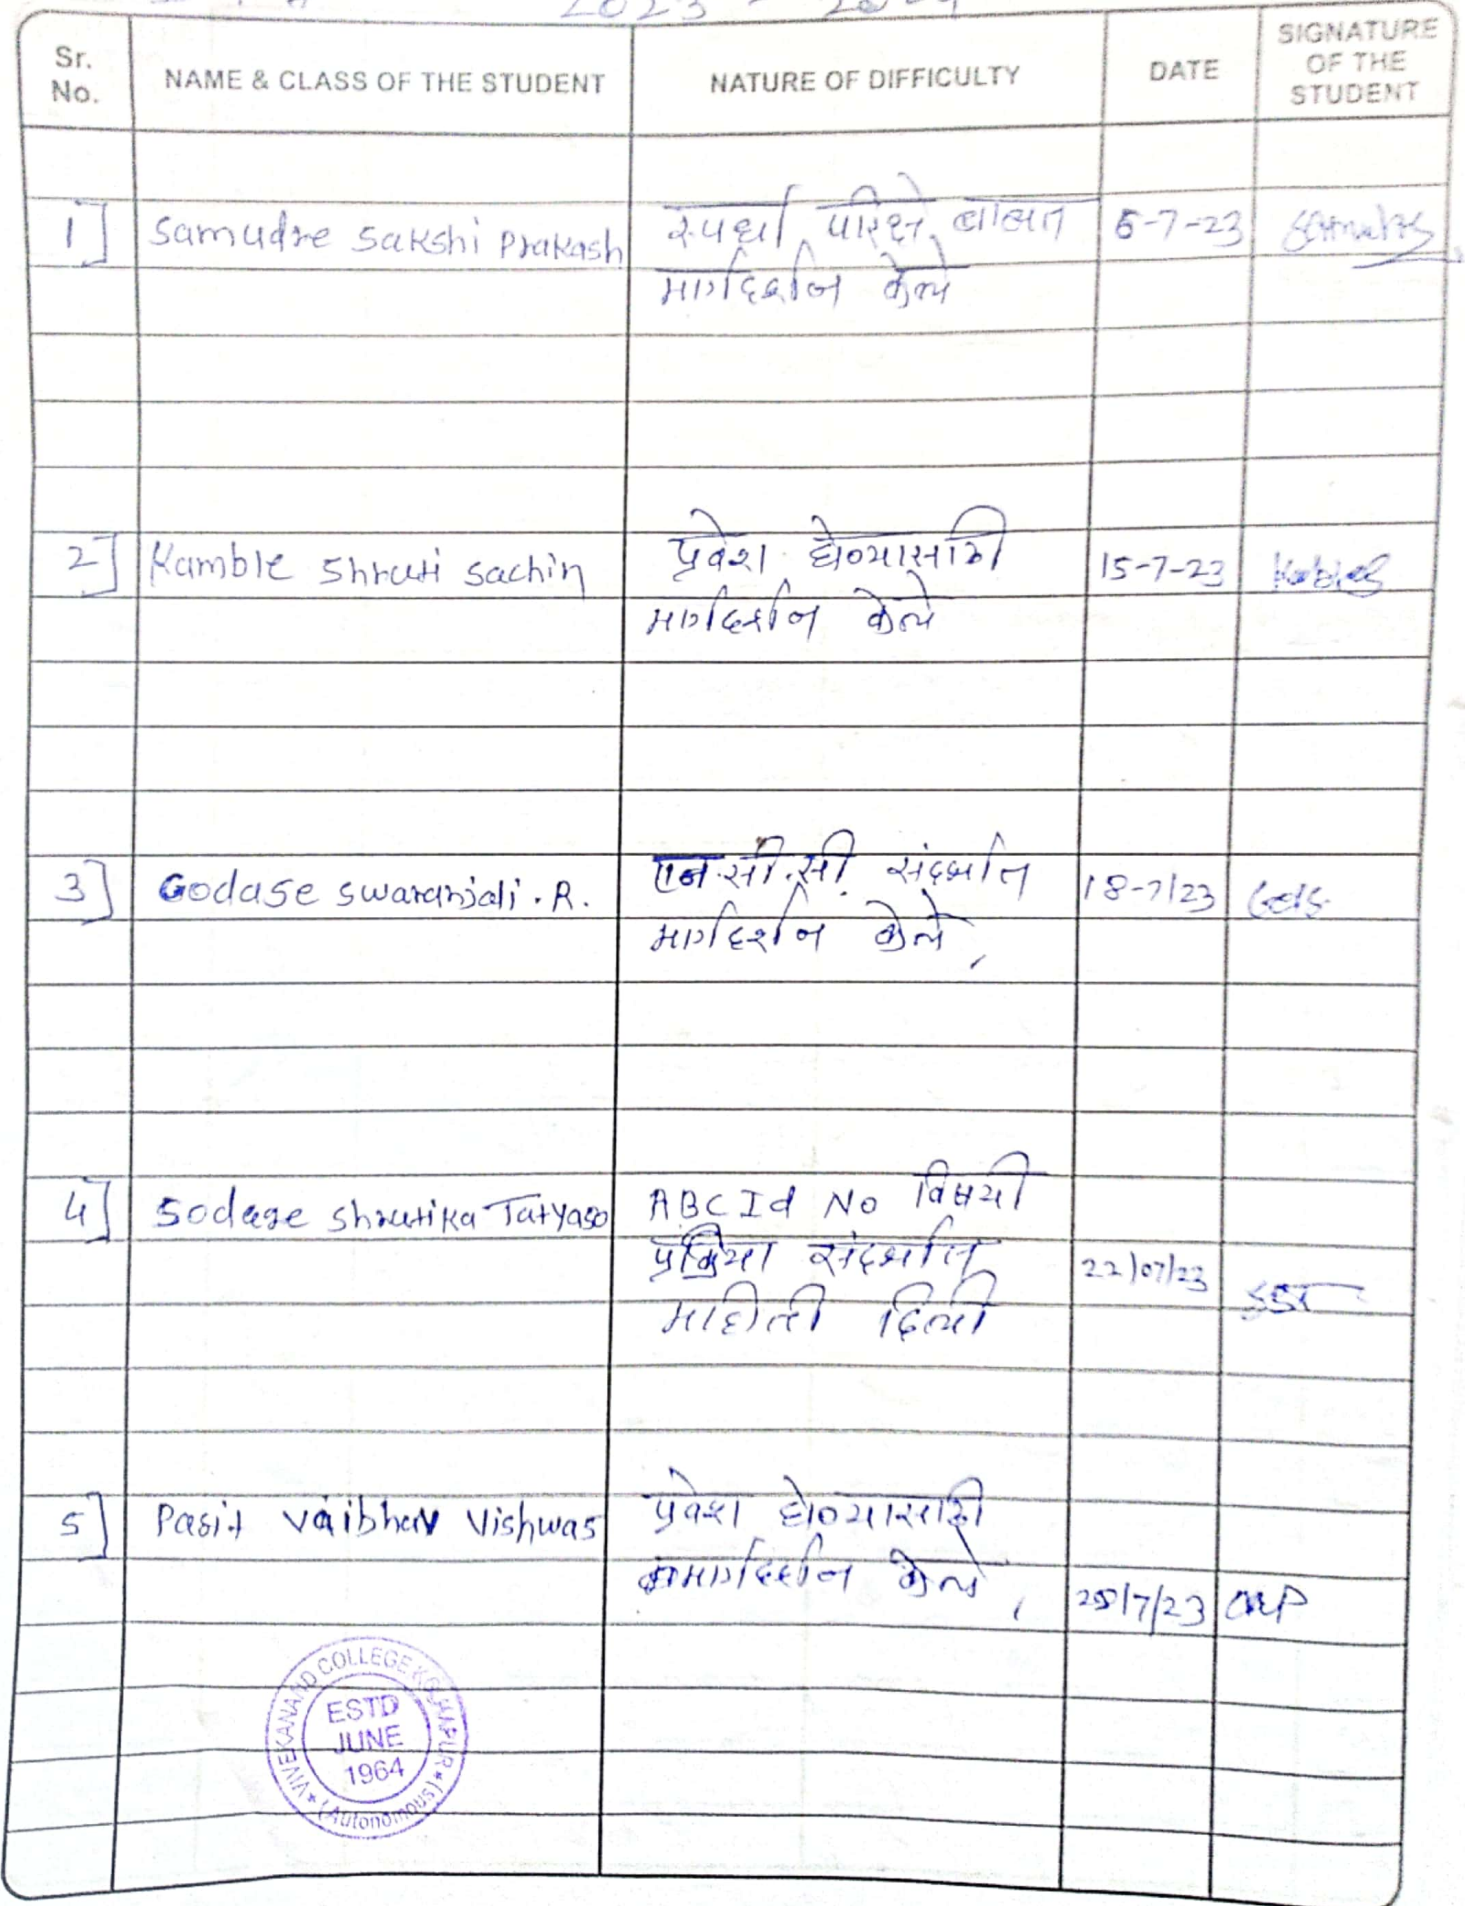 2023 - 2024
Sr. No. NAME & CLASS OF THE STUDENT NATURE OF DIFFICULTY DATE SIGNATURE OF THE STUDENT
1] Samudre Sakshi Prakash स्पर्धा परिक्षे बाबत 5-7-23
मार्गदर्शन केले
2] Kamble Shruti Sachin प्रवेश घेण्यासाठी 15-7-23
मार्गदर्शन केले
3] Godase Swaranjali . R. एन.सी.सी. संदर्भात 18-7/23
मार्गदर्शन केले,
4] Sodage Shrutika Tatyaso ABC Id No विषयी
प्रक्रिया संदर्भात 22/07/23 SST
माहिती दिली
5] Vaibhav Vishwas प्रवेश घेण्यासाठी
मार्गदर्शन केले,
VIVEKANAND COLLEGE KOLHAPUR
ESTD
JUNE
1964
(Autonomous)